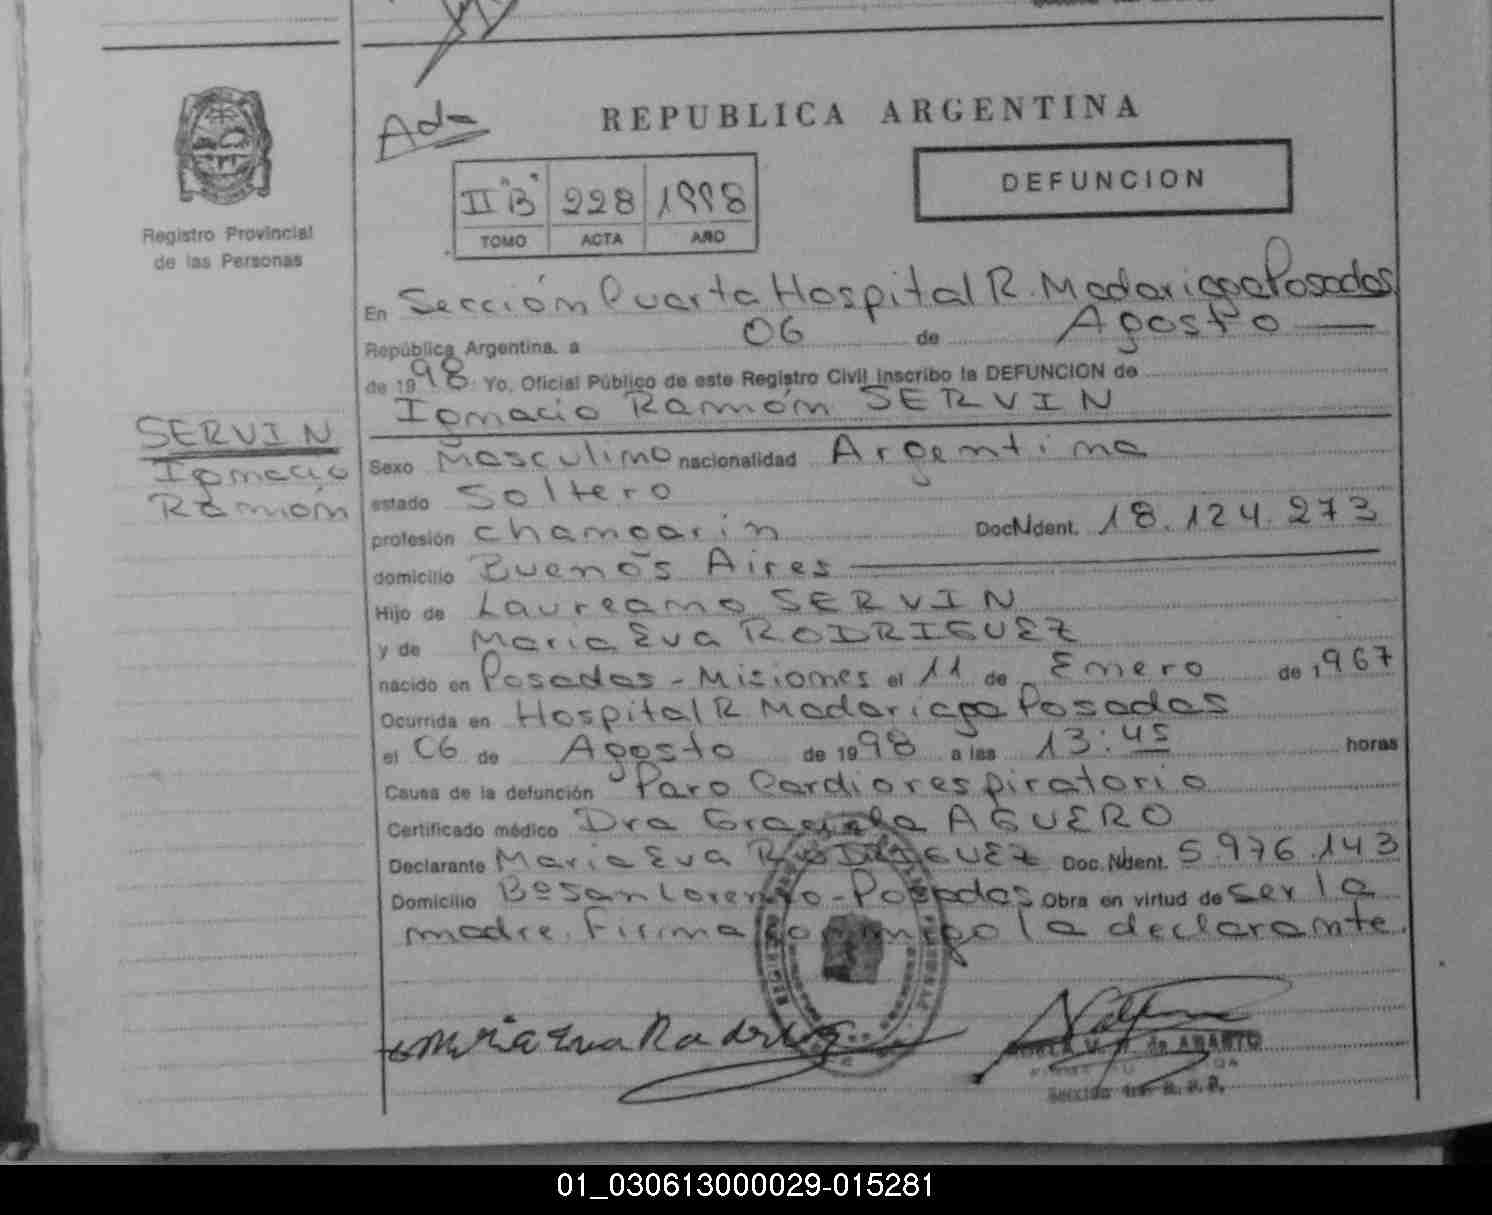 Ad-
REPUBLICA ARGENTINA
DEFUNCION
II "B" 228 1998
TOMO ACTA AÑO
Registro Provincial
de las Personas
En Sección Cuarta Hospital R. Madariaga Posadas
República Argentina, a 06 de Agosto
de 1998 Yo, Oficial Público de este Registro Civil inscribo la DEFUNCION de
Ignacio Ramón SERVIN
SERVIN
Ignacio
Ramón
Sexo Masculino nacionalidad Argentina
estado Soltero
profesión changarin Doc. Ident. 18.124.273
domicilio Buenos Aires
Hijo de Laureano SERVIN
y de Maria Eva RODRIGUEZ
nacido en Posadas - Misiones el 11 de Enero de 1967
Ocurrida en Hospital R Madariaga Posadas
el 06 de Agosto de 1998 a las 13:45 horas
Causa de la defunción Paro Cardiorespiratorio
Certificado médico Dra Graciela AGUERO
Declarante Maria Eva RODRIGUEZ Doc. Ident. 5.976.143
Domicilio Bº San Lorenzo - Posadas Obra en virtud de ser la
madre. Firma conmigo la declarante.
Maria Eva Rodriguez
de AMARTO
Sección 4ta.
01_030613000029-015281